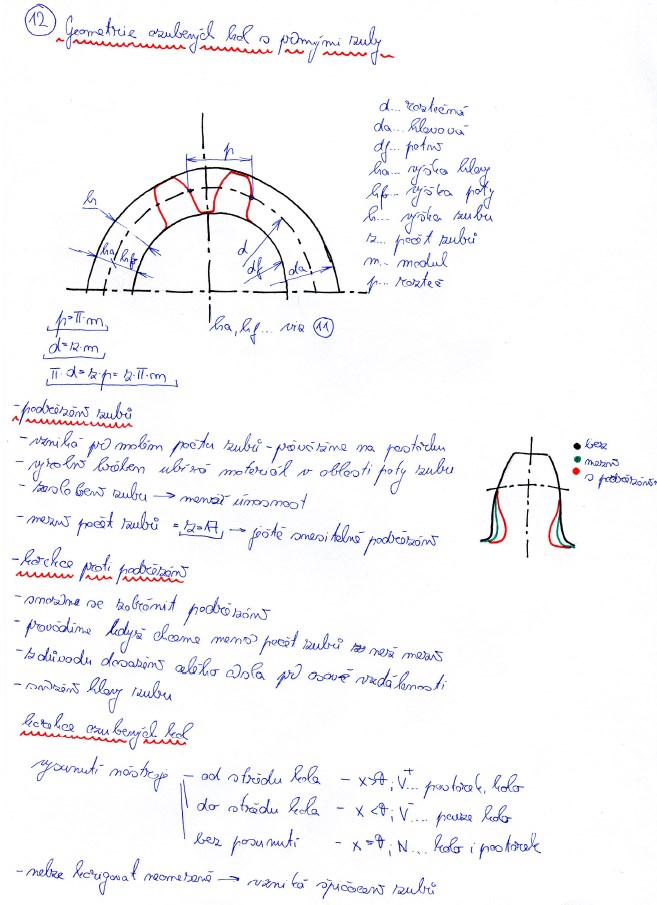 12 Geometrie ozubených kol s přímými zuby
d... roztečná
da... hlavová
df... patní
ha... výška hlavy
hf... výška paty
h... výška zubu
z... počet zubů
m... modul
p... rozteč
p
h
ha hf
d
df
da
ha, hf... viz 11
p=π·m
d=z·m
π·d=z·p=z·π·m
- podřezání zubů
- vzniká při malém počtu zubů - převážně na pastorku
- výrobní hřeben ubírá materiál v oblasti paty zubu
- zeslabení zubu → menší únosnost
- mezní počet zubů = z=17 → ještě snesitelné podřezání
bez
mezní
s podřezáním
- korekce proti podřezání
- snažíme se zabránit podřezání
- provádíme když chceme menší počet zubů než mezní
- z důvodu dosažení celého čísla při osové vzdálenosti
- snížení hlavy zubu
korekce ozubených kol
vysunutí nástroje - od středu kola - x>0; V⁺... pastorek, kolo
do středu kola - x<0; V⁻... pouze kolo
bez posunutí - x=0; N... kolo i pastorek
- nelze korigovat neomezeně → vzniká špičacení zubů